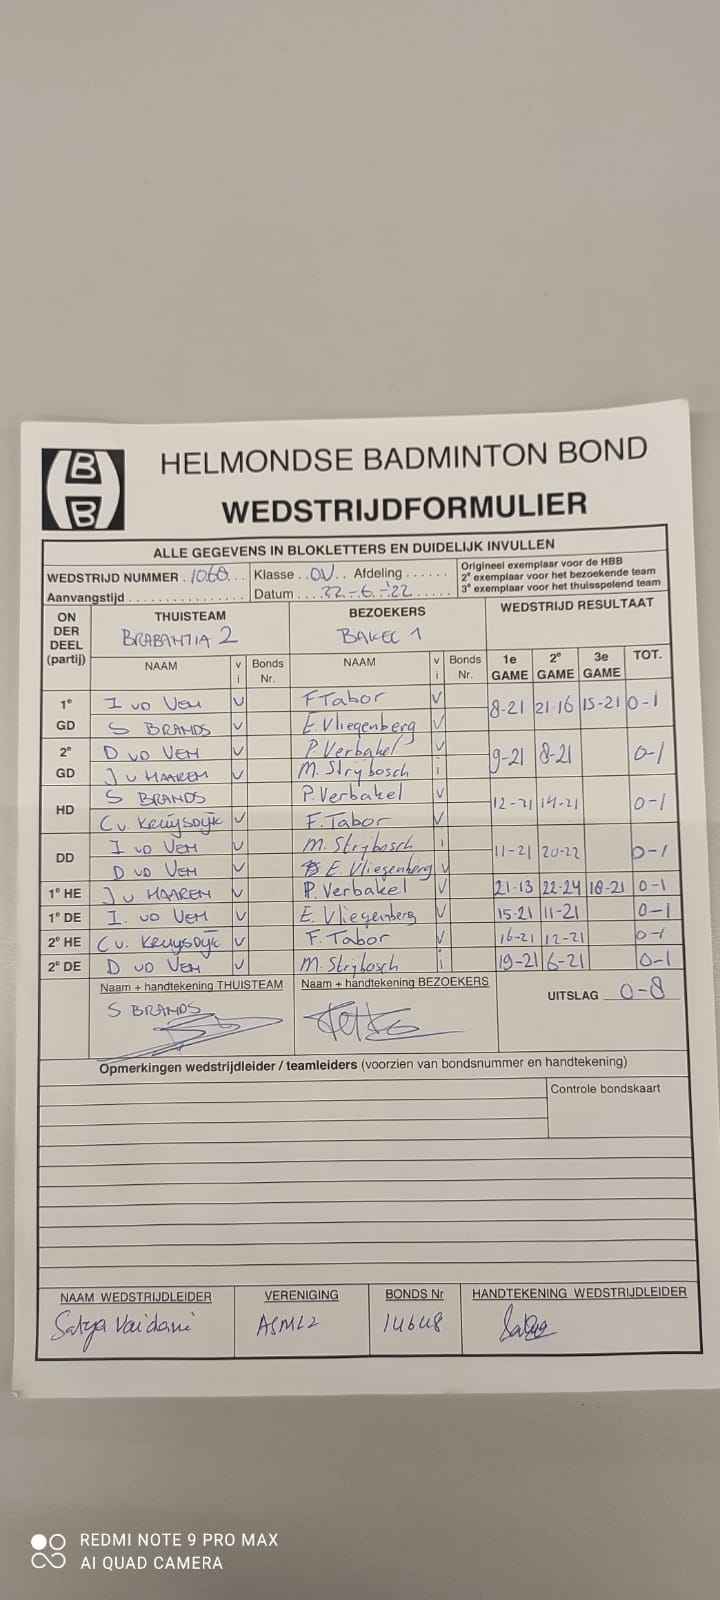 HELMONDSE BADMINTON BOND
WEDSTRIJDFORMULIER
ALLE GEGEVENS IN BLOKLETTERS EN DUIDELIJK INVULLEN
WEDSTRIJD NUMMER . 1060 . . . Klasse . . OV . . Afdeling . . . . . .
Aanvangstijd . . . . . . . . . . . . . . . . . Datum . . . 22-6-'22 . . . . . .
Origineel exemplaar voor de HBB
2e exemplaar voor het bezoekende team
3e exemplaar voor het thuisspelend team
ON DER DEEL (partij) THUISTEAM BEZOEKERS WEDSTRIJD RESULTAAT
BRABANTIA 2 BAKEL 1
NAAM v i Bonds Nr. NAAM v i Bonds Nr. 1e GAME 2e GAME 3e GAME TOT.
1e GD I VD VEN V F Tabor V 8-21 21-16 15-21 0-1
S BRANDS V E. Vliegenberg V
2e GD D VD VEN V P. Verbakel V 9-21 8-21 0-1
J V HAAREN V M. Strijbosch i
HD S BRANDS P. Verbakel V 12-21 14-21 0-1
C v. KRUYSDYK V F. Tabor V
DD I VD VEN V M. Strijbosch i 11-21 20-22 0-1
D VD VEN V E. Vliegenberg V
1e HE J V HAAREN V P. Verbakel V 21-13 22-24 18-21 0-1
1e DE I. VD VEN V E. Vliegenberg V 15-21 11-21 0-1
2e HE C v. KRUYSDYK V F. Tabor V 16-21 12-21 0-1
2e DE D VD VEN V M. Strijbosch i 19-21 6-21 0-1
Naam + handtekening THUISTEAM Naam + handtekening BEZOEKERS UITSLAG 0-8
S BRANDS
Opmerkingen wedstrijdleider / teamleiders (voorzien van bondsnummer en handtekening)
Controle bondskaart
NAAM WEDSTRIJDLEIDER VERENIGING BONDS Nr HANDTEKENING WEDSTRIJDLEIDER
Satya Vaidani ASML2 14648
REDMI NOTE 9 PRO MAX
AI QUAD CAMERA